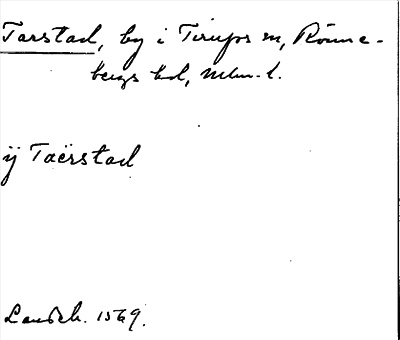 Tarstad, by i Tirups sn, Rönne-
bergs hd, Mlm. l.
ij Taërstad
Landsk. 1569.